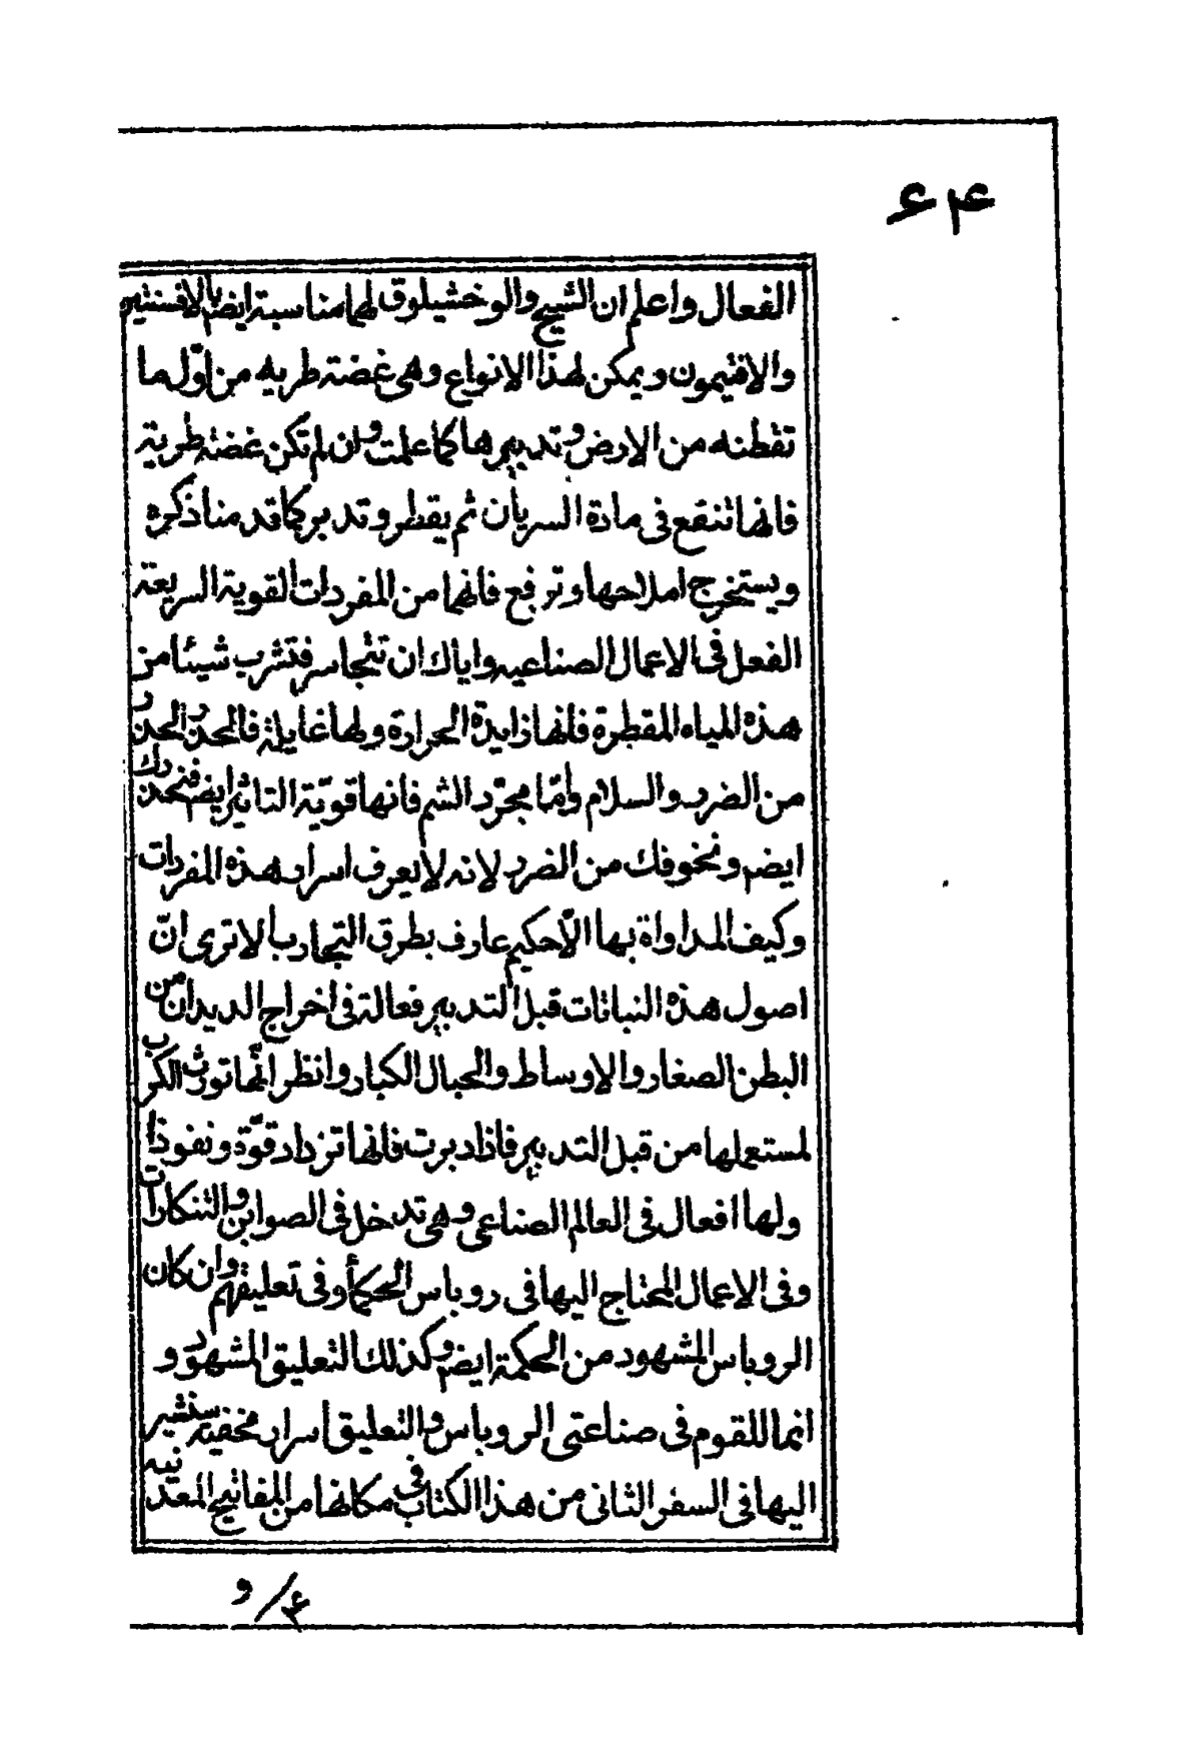 ۶۴
الفعال واعلم ان الشيح والوخشيلوق لهما مناسبة ايضا بالافسنتين
والافتيمون ويمكن لهذا الانواع وهى غضة طريه من اوّل ما
تقطنه من الارض وتدبيرها كما علمت وان لم تكن غضة طرية
فانها تنقع فى مادة السريان ثم يقطر وتدبر كما قدمنا ذكره
ويستخرج املاحها وترفع فانها من المفردات القوية السريعة
الفعل فى الاعمال الصناعيه واياك ان تتجاسر فتشرب شيئا من
هذه المياه المقطرة فانها زايدة الحرارة ولها غايلة فالحذر الحذر
من الضرر والسلام وأمّا مجرّد الشم فانها قويّة التاثير ايضم فنحذرك
ايضم ونخوفك من الضرر لانه لا يعرف اسرار هذه المفردات
وكيف المداواة بها الّا حكيم عارف بطرق التجارب ألا ترى انّ
اصول هذه النباتات قبل التدبير فعالة فى اخراج الديدان من
البطن الصغار والاوساط والحبال الكبار وانظر انّها تورث الكرب
لمستعملها من قبل التدبير فاذا دبرت فانها تزداد قوّة ونفوذا
ولها افعال فى العالم الصناعى وهى تدخل فى الصوابن والتنكارات
وفى الاعمال المحتاج اليها فى روباس الحكمأ وفى تعليقهم وان كان
الروباس المشهود من الحكمة ايضم وكذلك التعليق المشهود و
انما للقوم فى صناعتى الروباس والتعليق اسرار مخفية سنشير
اليها فى السفر الثانى من هذا الكتاب فى مكانها من المفاتيح المعدنيه
۶/و